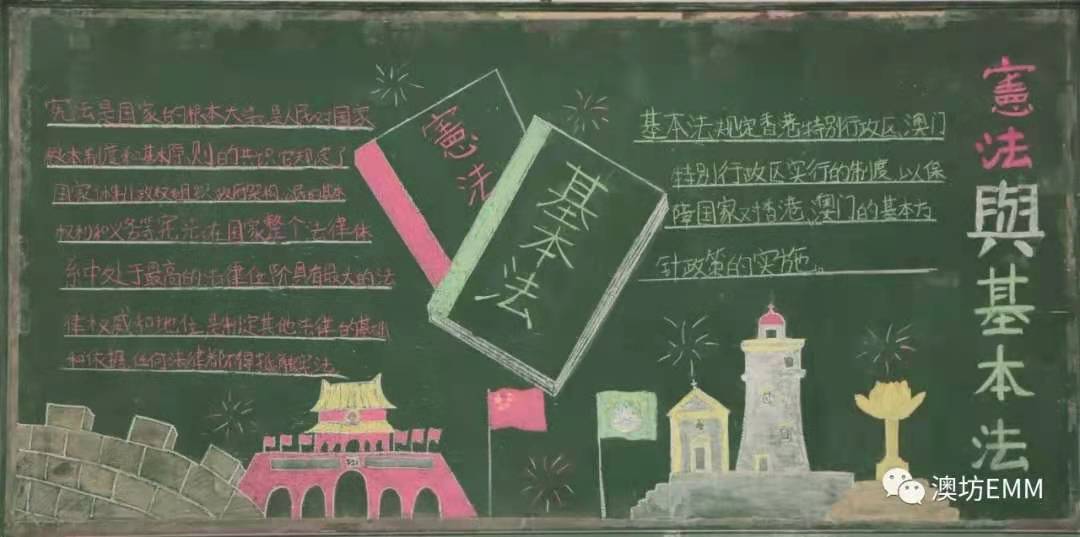 憲法與基本法
憲法
基本法
宪法是国家的根本大法,是人民对国家
根本制度和基本原则的共识,它规定了
国家体制,政权组织,政府架构,公民的基本
权利和义务等,宪法在国家整个法律体
系中处于最高的法律位阶具有最大的法
律权威和地位,是制定其他法律的基础
和依据,任何法律都不得抵触宪法
基本法规定香港特别行政区,澳门
特别行政区实行的制度,以保
障国家对香港,澳门的基本方
针政策的实施。
澳坊EMM